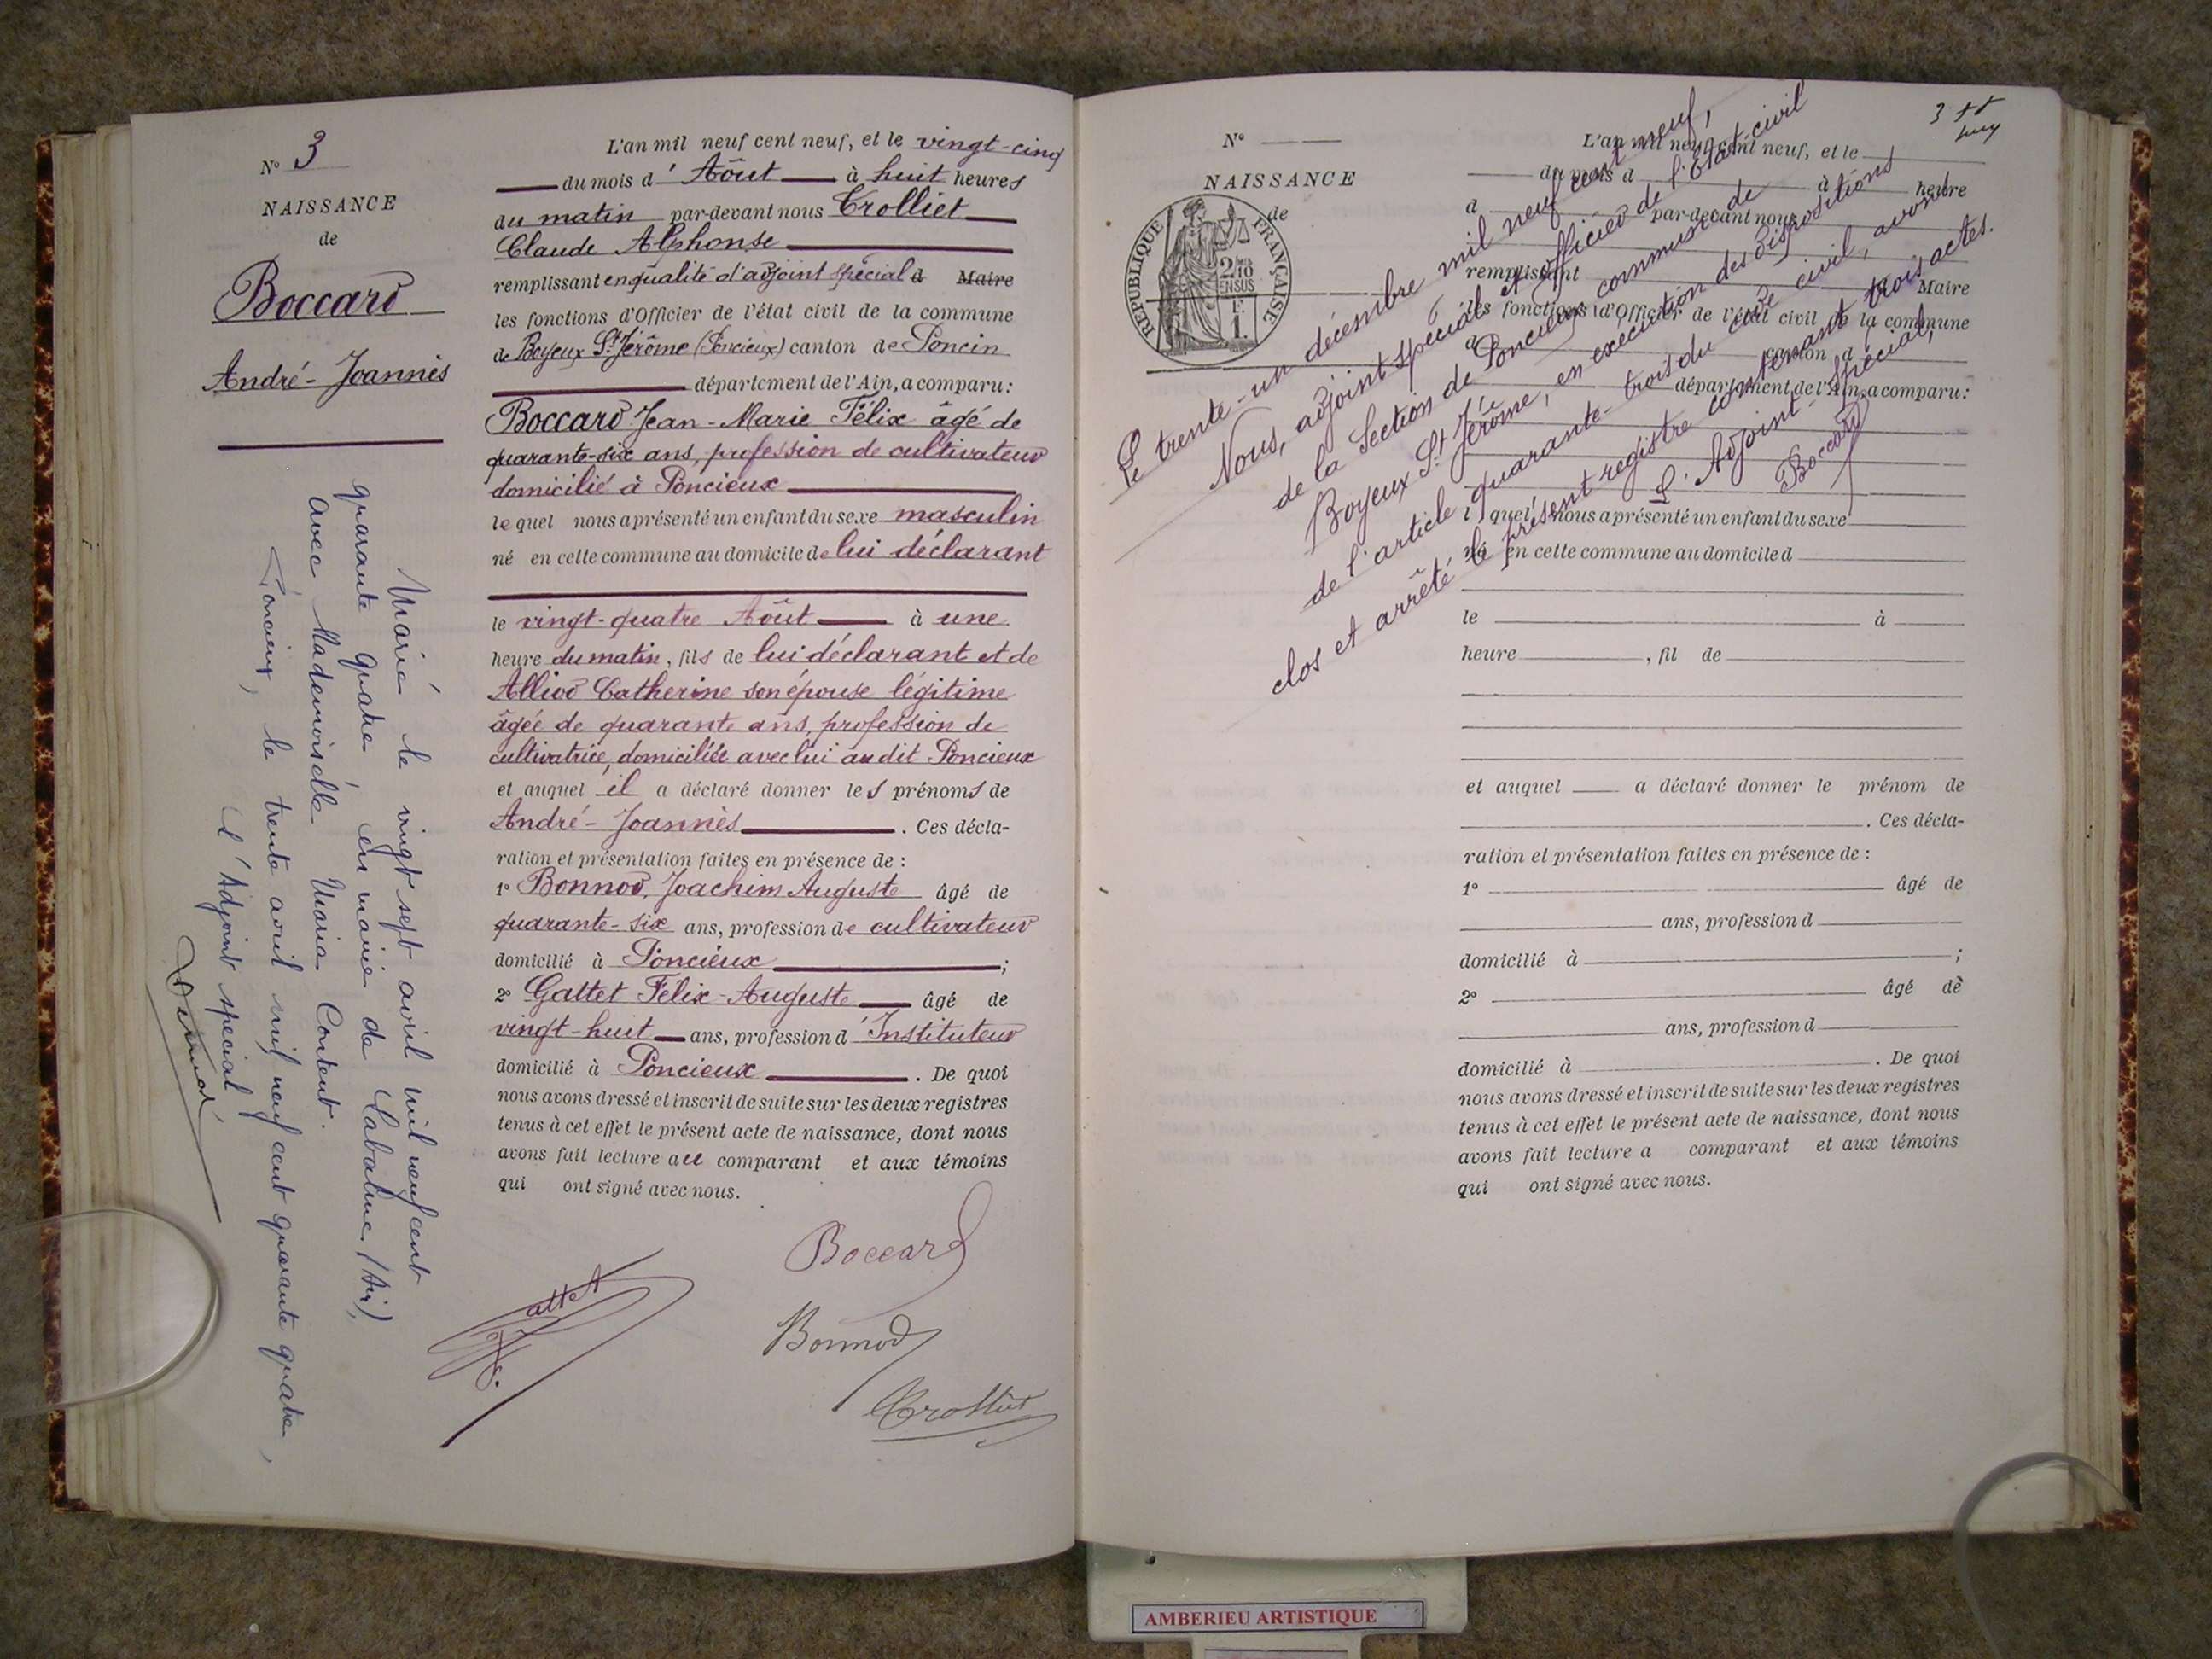 N° 3
NAISSANCE
de
Boccard
André-Joannès
Marié le vingt sept avril mil neuf cent
quarante quatre, en mairie de Labalme (Ain),
avec Mademoiselle Maria Content.
Poncieux, le trente avril mil neuf cent quarante quatre,
l'Adjoint spécial
L'an mil neuf cent neuf, et le vingt-cinq
du mois d'Août à huit heures
du matin par-devant nous Trolliet
Claude Alphonse
remplissant en qualité d'adjoint spécial d Maire
les fonctions d'Officier de l'état civil de la commune
de Boyeux St Jérôme (Poncieux) canton de Poncin
département de l'Ain, a comparu :
Boccard Jean-Marie Félix âgé de
quarante-six ans, profession de cultivateur
domicilié à Poncieux
lequel nous a présenté un enfant du sexe masculin
né en cette commune au domicile de lui déclarant
le vingt-quatre Août à une
heure du matin, fils de lui déclarant et de
Alliod Catherine son épouse légitime
âgée de quarante ans, profession de
cultivatrice, domiciliée avec lui au dit Poncieux
et auquel il a déclaré donner les prénoms de
André-Joannès. Ces décla-
ration et présentation faites en présence de :
1° Bonnod, Joachim Auguste âgé de
quarante-six ans, profession de cultivateur
domicilié à Poncieux ;
2° Gattet Félix-Auguste âgé de
vingt-huit ans, profession d'Instituteur
domicilié à Poncieux. De quoi
nous avons dressé et inscrit de suite sur les deux registres
tenus à cet effet le présent acte de naissance, dont nous
avons fait lecture au comparant et aux témoins
qui ont signé avec nous.
Boccard
Gattet
Bonnod
Trolliet
N°
NAISSANCE
de
RÉPUBLIQUE FRANÇAISE
2/10 EN SUS
1 F.
L'an mil neuf cent neuf, et le
du mois d à heure
d par-devant nous
remplissant d Maire
les fonctions d'Officier de l'état civil de la commune
d canton d
département de l'Ain, a comparu :
l quel nous a présenté un enfant du sexe
né en cette commune au domicile d
le à
heure , fil de
et auquel a déclaré donner le prénom de
. Ces décla-
ration et présentation faites en présence de :
1° âgé de
ans, profession d
domicilié à ;
2° âgé de
ans, profession d
domicilié à . De quoi
nous avons dressé et inscrit de suite sur les deux registres
tenus à cet effet le présent acte de naissance, dont nous
avons fait lecture a comparant et aux témoins
qui ont signé avec nous.
Le trente-un décembre mil neuf cent neuf,
Nous, adjoint spécial et officier de l'État-civil
de la Section de Poncieux commune de
Boyeux St Jérôme, en exécution des dispositions
de l'article quarante-trois du code civil, avons
clos et arrêté le présent registre contenant trois actes.
L'Adjoint-Spécial,
Boccard
AMBERIEU ARTISTIQUE